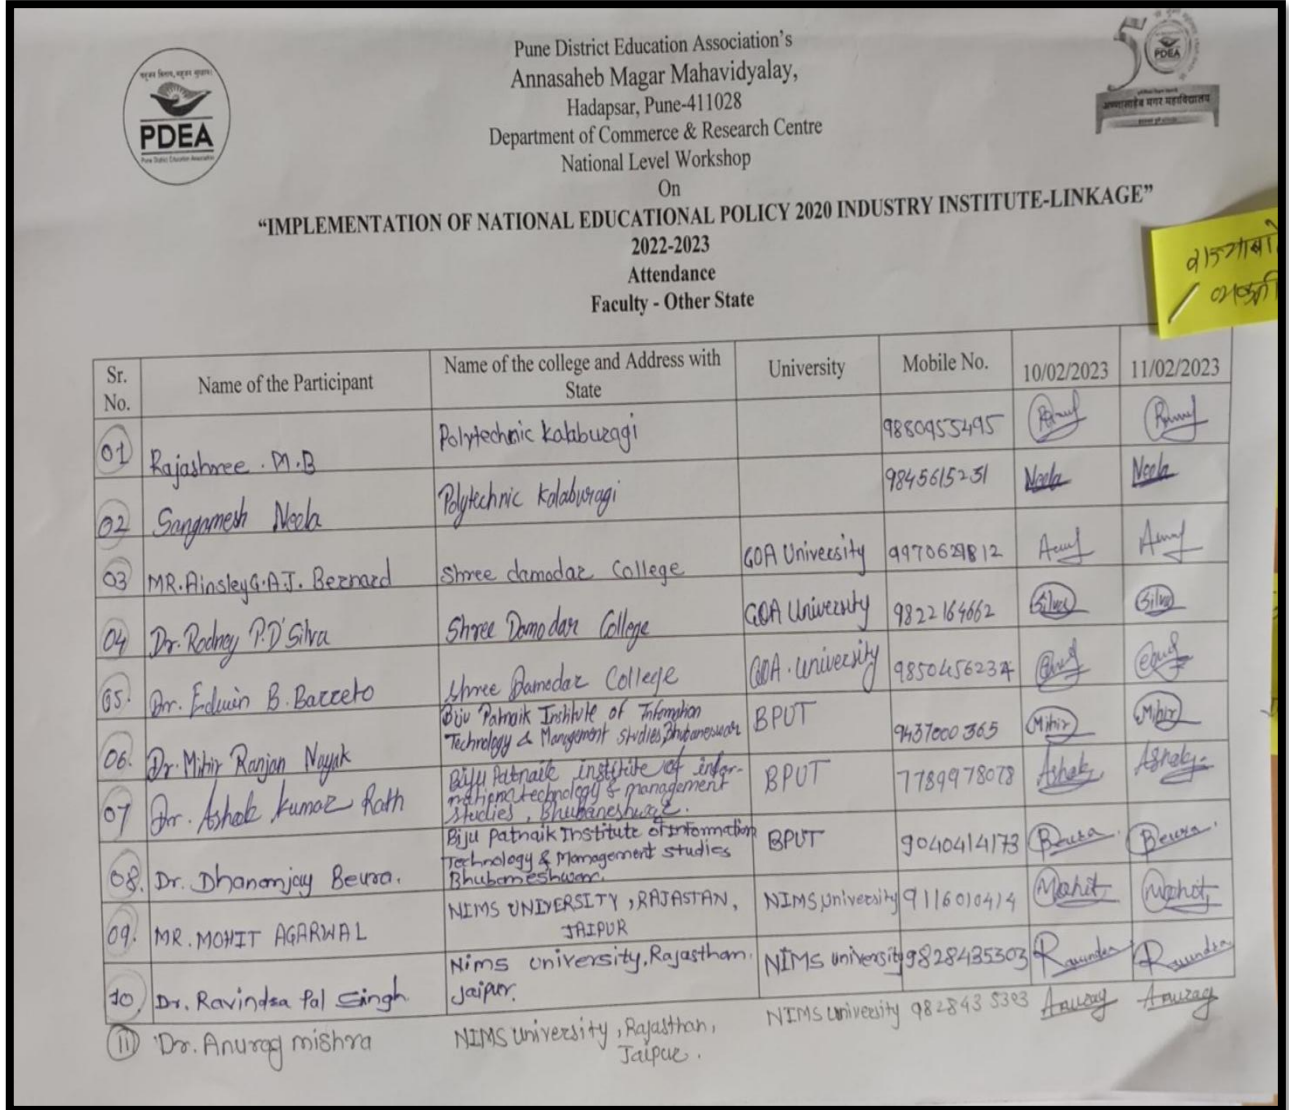 बहुजन हिताय, बहुजन सुखाय
PDEA
Pune District Education Association
Pune District Education Association's
Annasaheb Magar Mahavidyalay,
Hadapsar, Pune-411028
Department of Commerce & Research Centre
National Level Workshop
On
“IMPLEMENTATION OF NATIONAL EDUCATIONAL POLICY 2020 INDUSTRY INSTITUTE-LINKAGE”
2022-2023
Attendance
Faculty - Other State
50
PDEA
अण्णासाहेब मगर महाविद्यालय
Sr. No. Name of the Participant Name of the college and Address with State University Mobile No. 10/02/2023 11/02/2023
01 Rajashree . M.B Polytechnic Kalaburagi 9880955495
02 Sangamesh Neela Polytechnic Kalaburagi 9845615231 Neela Neela
03 MR.Ainsley G.A.J. Bernard Shree damodar College GOA University 9970629812
04 Dr. Rodney P.D'Silva Shree Damodar College GOA University 9822164662 Silva Silva
05. Dr. Edwin B. Barreto Shree Damodar College GOA . University 9850456234
06. Dr. Mihir Ranjan Nayak Biju Patnaik Institute of Information
Technology & Management studies, Bhubaneswar BPUT 9437000365 Mihir Mihir
07 Dr. Ashok Kumar Rath Biju Patnaik institute of infor-
mation technology & management
studies, Bhubaneshwar. BPUT 7789978078 Ashok Ashok
08. Dr. Dhananjay Beura. Biju Patnaik Institute of Information
Technology & Management studies
Bhubaneshwar. BPUT 9040414173 Beura Beura
09. MR. MOHIT AGARWAL NIMS UNIVERSITY, RAJASTAN,
JAIPUR NIMS University 9116010414 Mohit Mohit
10. Dr. Ravindra Pal Singh. Nims University, Rajasthan.
Jaipur. NIMS University 9828435303 Ravindra Ravindra
11 Dr. Anurag mishra NIMS University, Rajasthan,
Jaipur. NIMS University 9828435303 Anurag Anurag